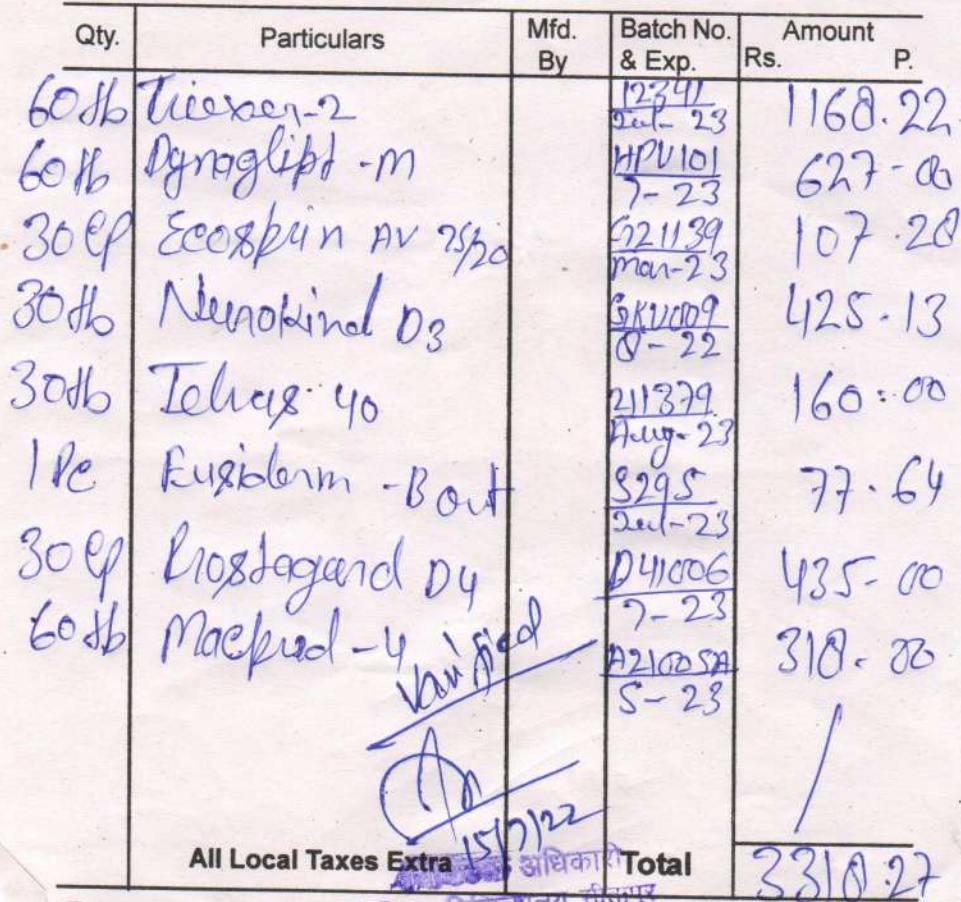 Qty. Particulars Mfd. By Batch No. & Exp. Amount Rs. P.
60 tb Triexer-2 12341 Jul-23 1168.22
60 tb Dynaglipt-M HPV101 7-23 627-00
30 Cp Ecosprin AV 75/20 Mar-23 107.28
30 tb Nurokind D3 8-22 425.13
30 tb Telvas 40 211379 Aug-23 160:00
1 Pc Fusiderm-B oint S295 Jul-23 77.64
30 Cp Prostagard D4 7-23 435-00
60 tb Macpred-4 5-23 318.00
Varified
15/7/22
All Local Taxes Extra Total 3318.27
अधिकारी